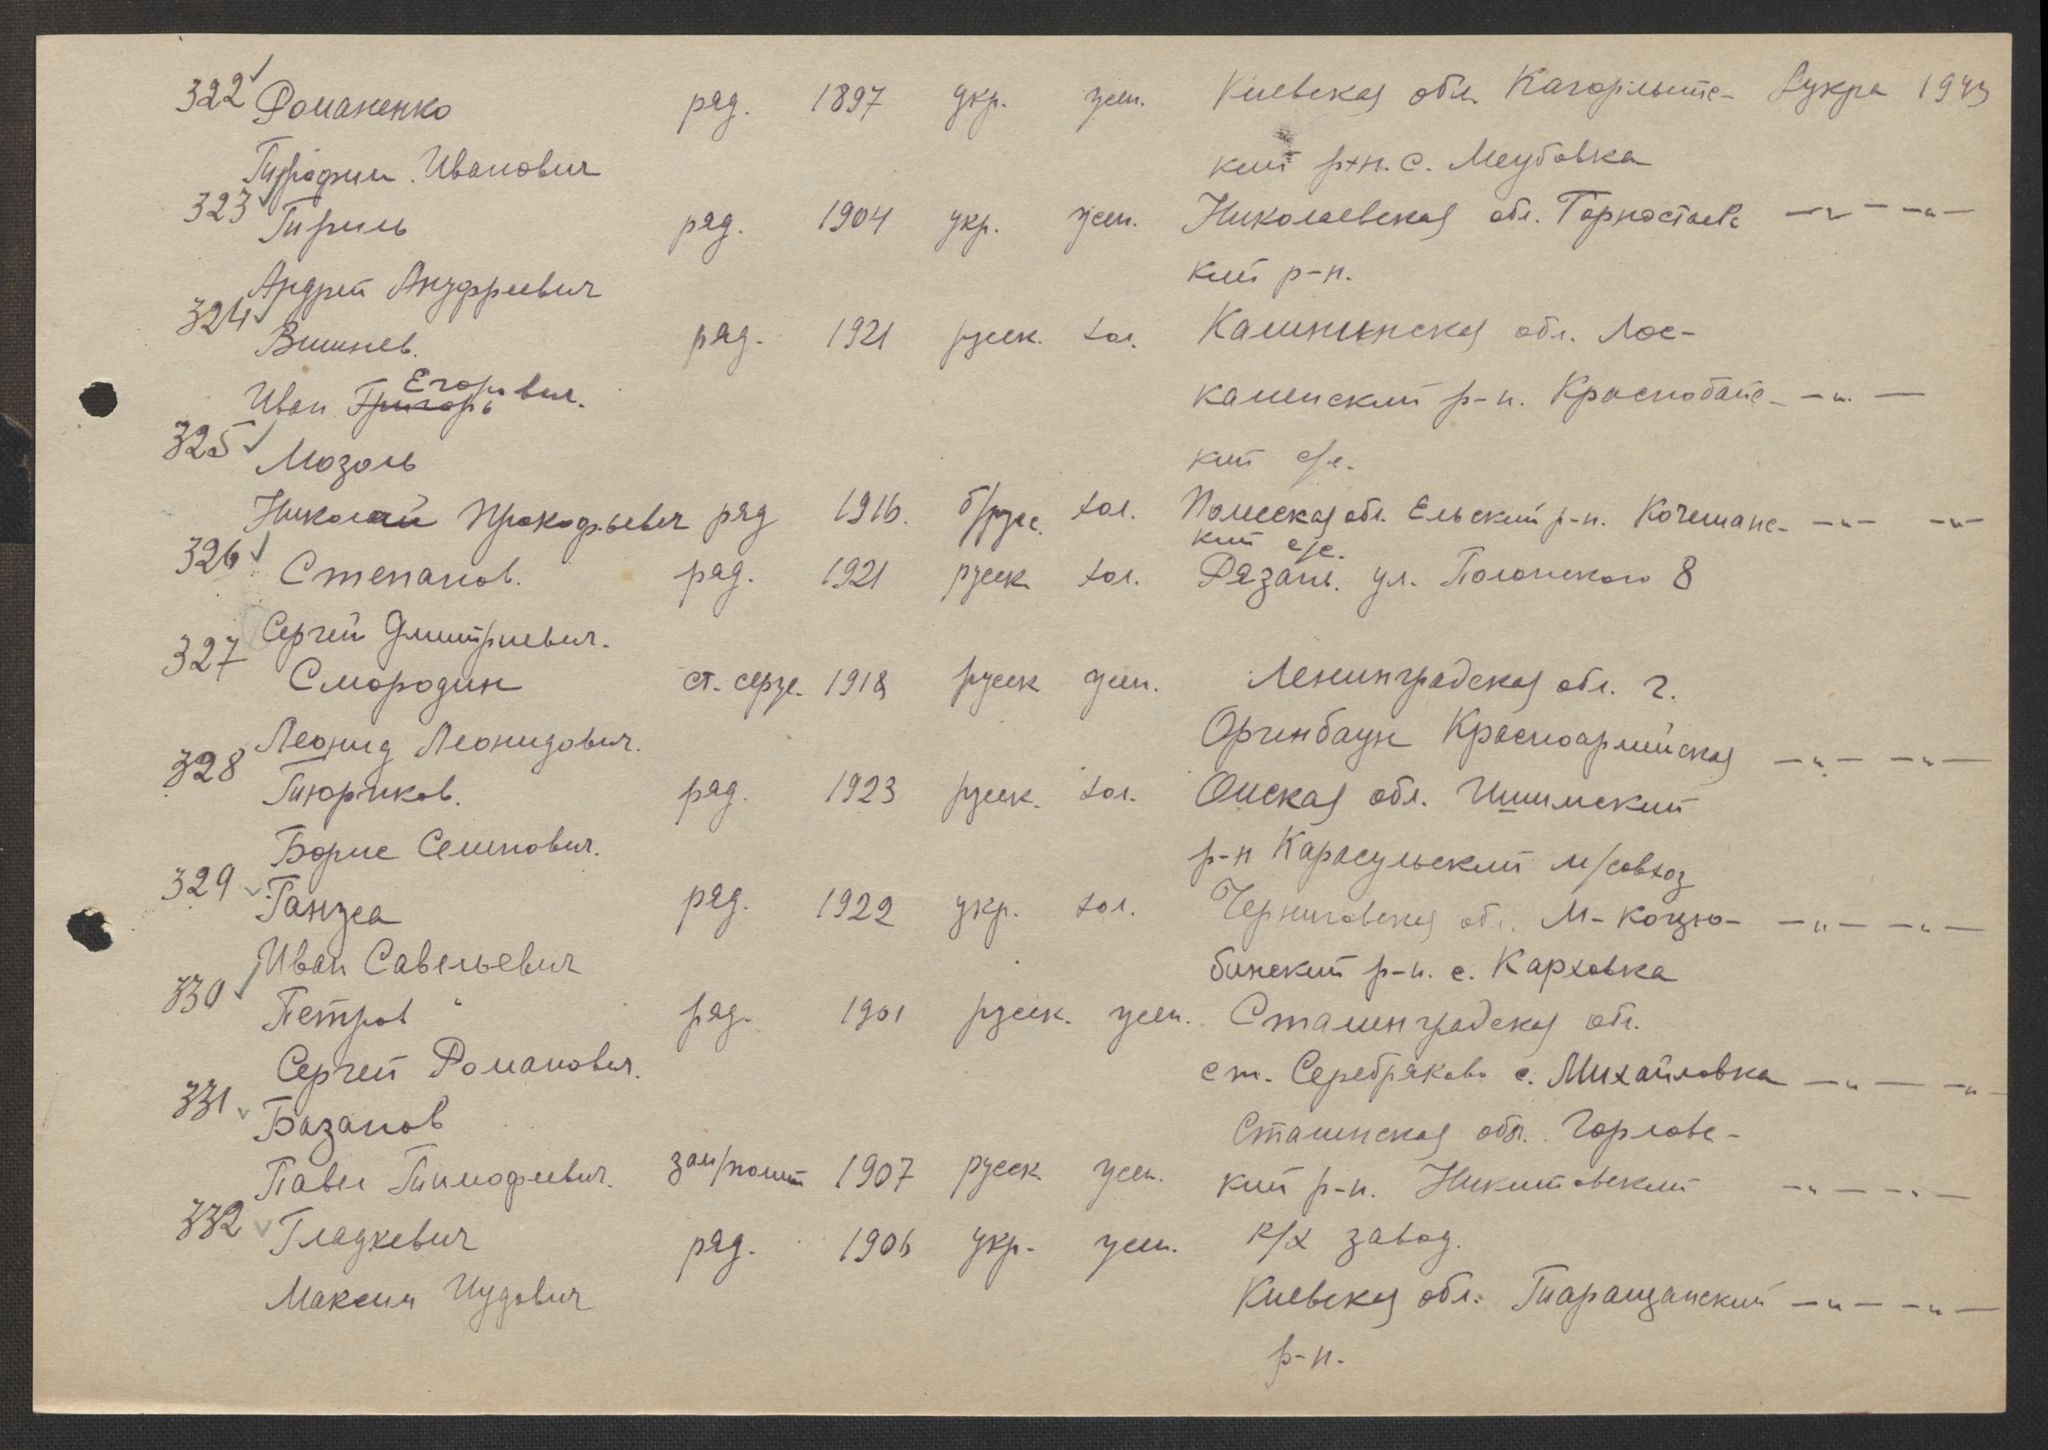 322 Романенко ряд. 1897 укр. жен. Киевская обл. Кагарлыкс- 1943
Иванович кий р-н. с.
323 Гириль ряд. 1904 укр. жен. Николаевская обл. Горностаевс -"- -"-
Андрей Ануфриевич кий р-н.
324 Вишнев. ряд. 1921 русск. хол. Калининская обл. Лос-
Иван Григорь Егорович. каменский р-н. Краснобайс- -"-
325 Мозоль кий с/с.
Николай Прокофьевич ряд 1916. б/русс. хол. Полесская обл. Ельский р-н. Кочещанс- -"- -"-
кий с/с.
326 Степанов. ряд. 1921 русск хол. Рязань. ул. Полонского 8
Сергей Дмитриевич.
327 Смородин ст. серж. 1918 русск жен. Ленинградская обл. г.
Леонид Леонидович. Красноармейская -"- -"-
328 Тюриков. ряд. 1923 русск. хол. Омская обл. Ишимский
Борис Семенович. р-н Карасульский м/совхоз
329 Ганжа ряд. 1922 укр. хол. Черниговская обл. М-Коцю- -"- -"-
Иван Савельевич бинский р-н. с. Карховка
330 Петров ряд. 1901 русск. жен. Сталинградская обл.
Сергей Романович. ст. Серебряково с. Михайловка -"- -"-
331 Базанов Сталинская обл. Горловс-
Павел Тимофеевич. зам/полит 1907 русск. жен. кий р-н. Никитовский -"- -"-
332 Гладкевич ряд. 1906 укр. жен. завод.
Максим Иудович Киевская обл. Таращанский -"- -"-
р-н.